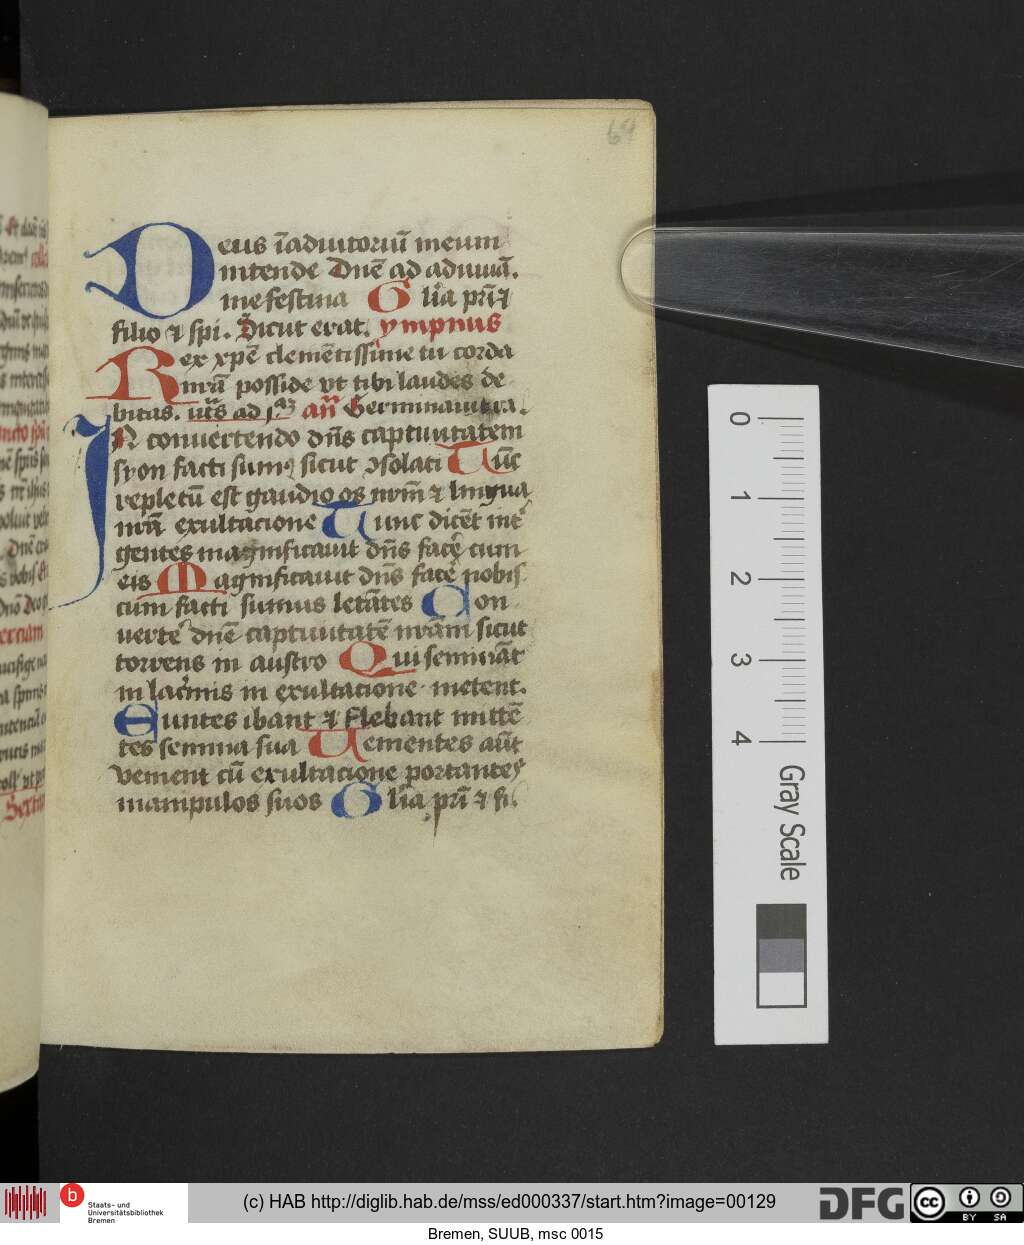 64
Deus ī adiutoriū meum
intende Dn̄e ad adiuuā.
me festina Gl'ia pr̄i ⁊
filio ⁊ spi. Sicut erat. ympnus
Rex xp̄e clemētissime tu corda
nr̄a posside vt tibi laudes de
bitas. ut̄s ad añ Germinauit ra.
IN conuertendo dn̄s captiuitatem
syon facti sumꝰ sicut ꝯsolati Tūc
repletū est gaudio os nrm̄ ⁊ lingua
nr̄a exultacione Tunc dicēt int̾
gentes magnificauit dn̄s facē cum
eis Magnificauit dn̄s facē nobis
cum facti sumus letātes Con
uerte dn̄e captiuitatē nr̄am sicut
torrens in austro Qui semināt
in lacrimis in exultacione metent.
Euntes ibant ⁊ flebant mittē
tes semina sua Uementes aūt
venient cū exultacione portantes
manipulos suos Gl'ia pr̄i ⁊ fi.
0
1
2
3
4
Gray Scale
b
Staats- und
Universitätsbibliothek
Bremen
(c) HAB http://diglib.hab.de/mss/ed000337/start.htm?image=00129
DFG
cc BY SA
Bremen, SUUB, msc 0015